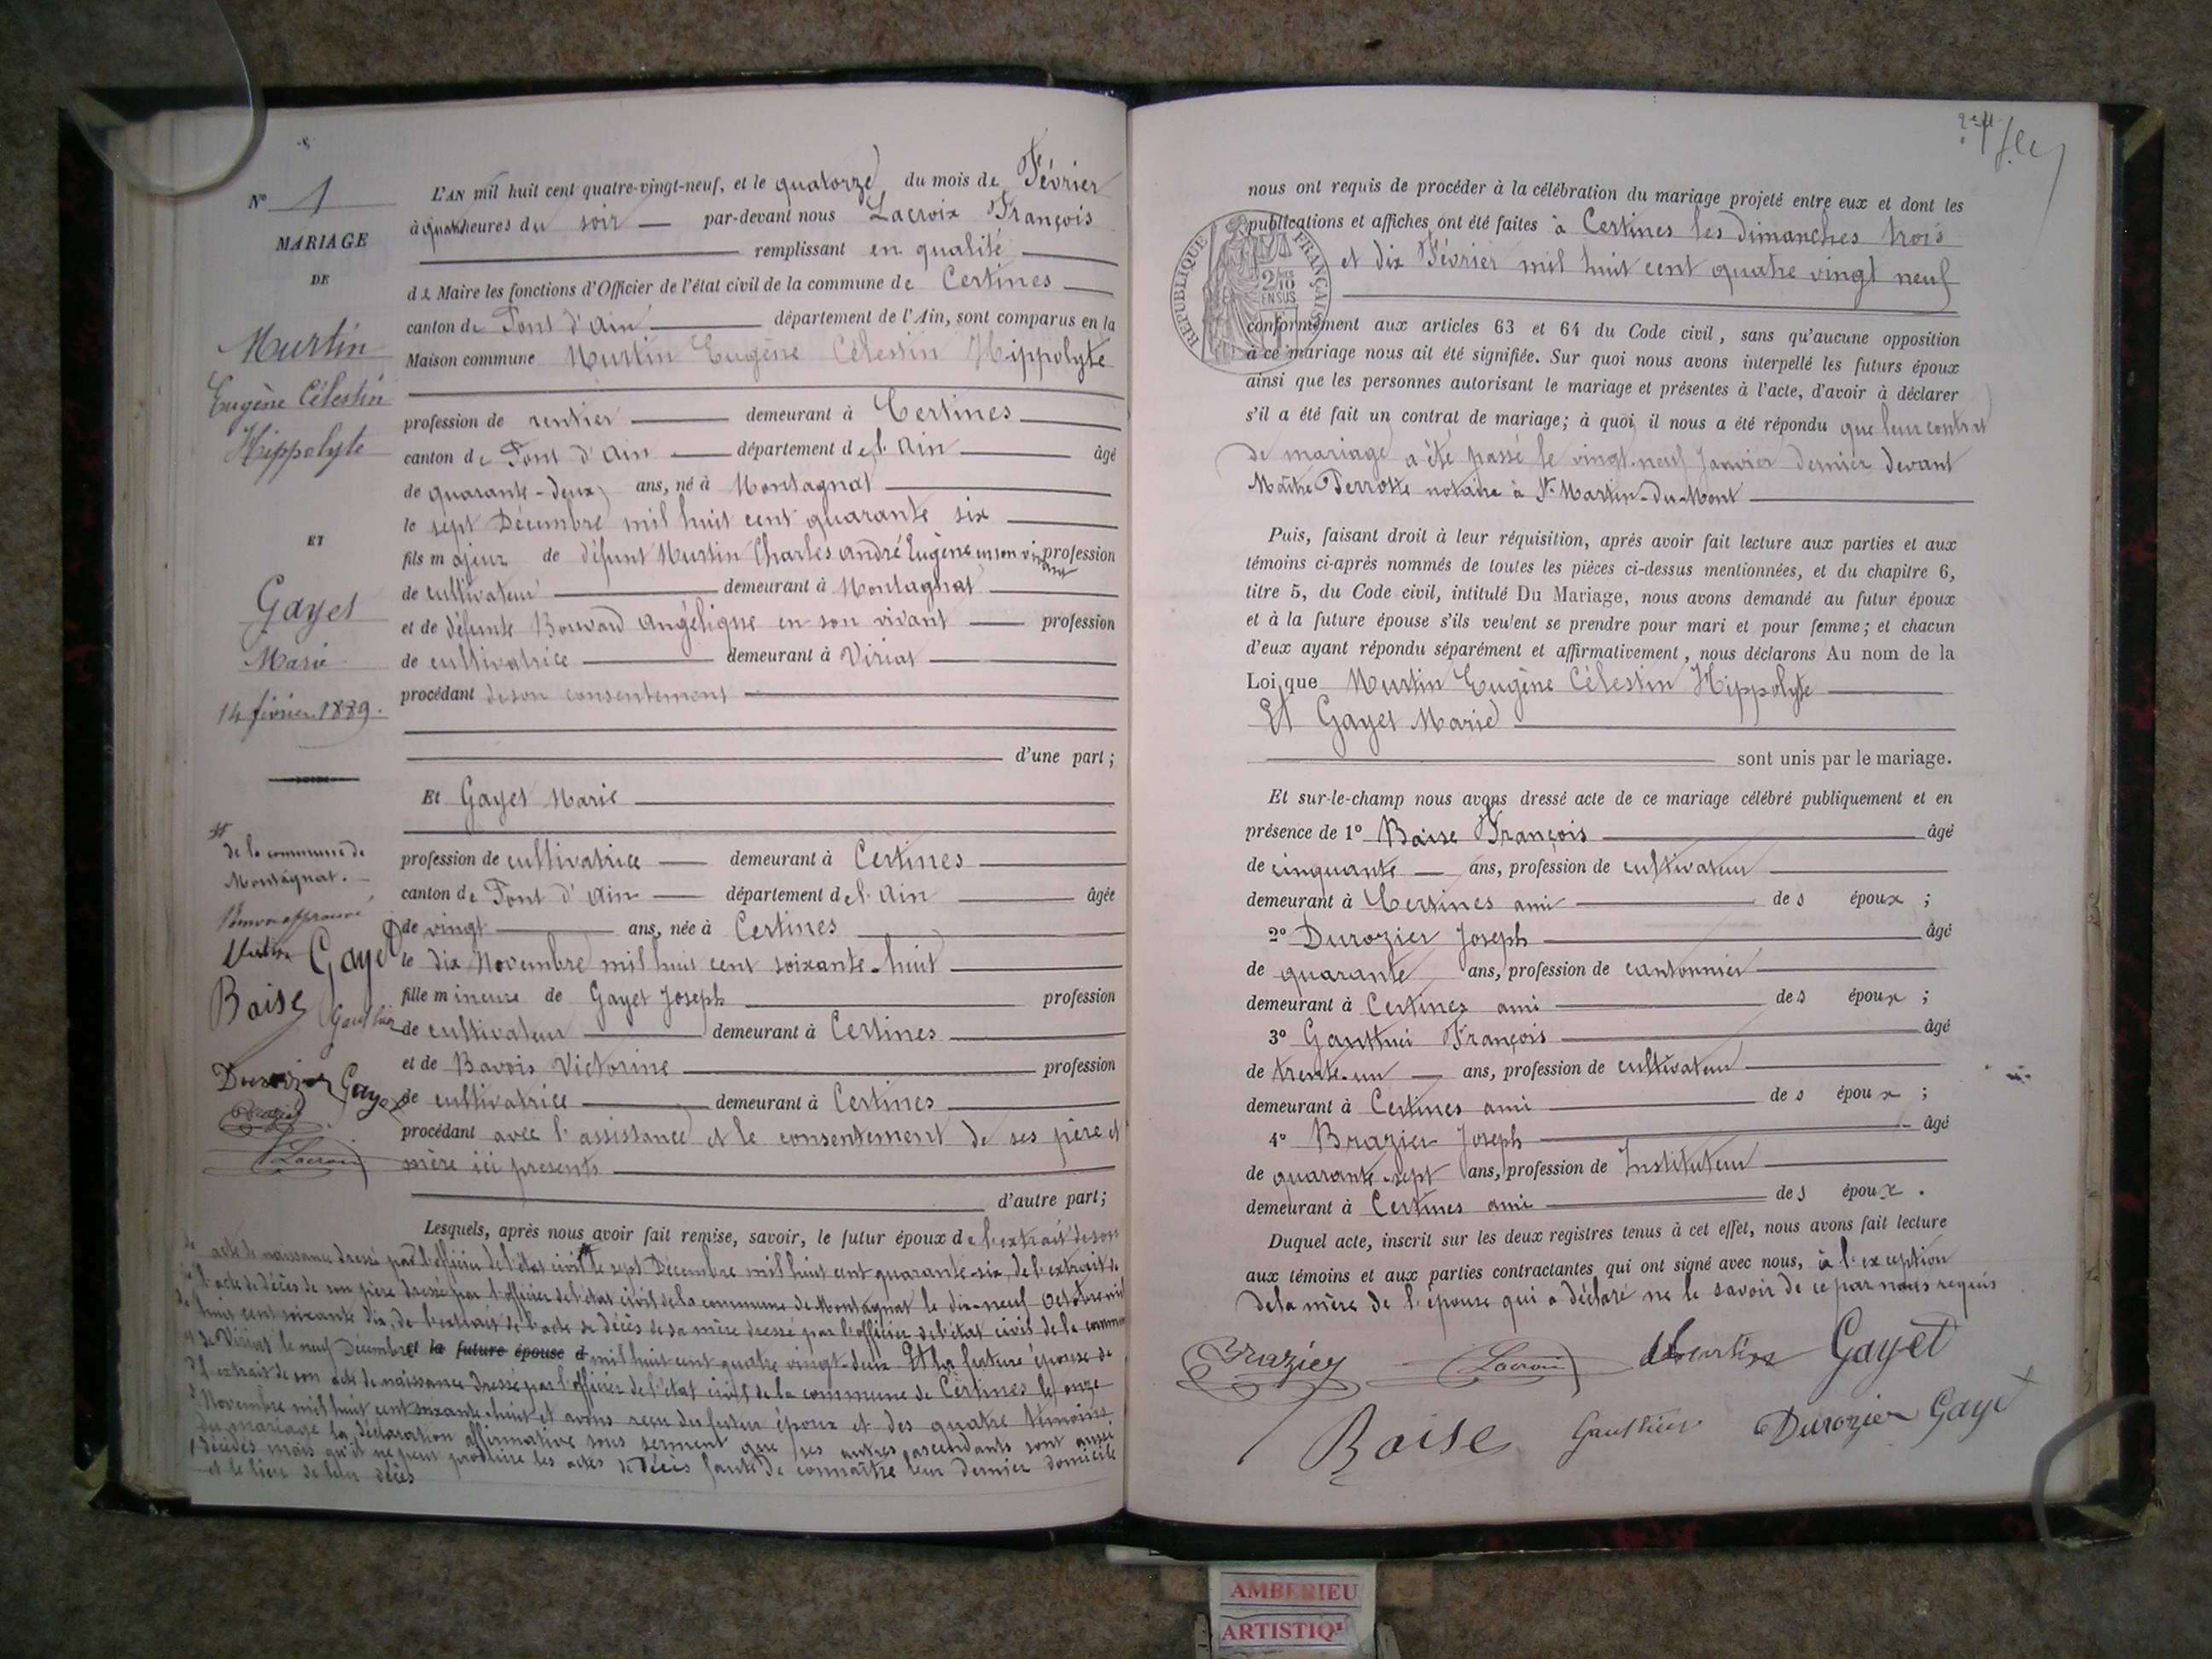 N° 1
MARIAGE
DE
Murtin
Eugène Célestin
Hippolyte
ET
Gayet
Marie
14 février 1889.
de la commune de
Montagnat.
Gayet
Boise Gauthier
Durozier Gayet
Brazier
Lacroix
L'AN mil huit cent quatre-vingt-neuf, et le quatorze du mois de Février
à quatre heures du soir par-devant nous Lacroix François
remplissant en qualité
de Maire les fonctions d'Officier de l'état civil de la commune de Certines
canton de Pont d'Ain département de l'Ain, sont comparus en la
Maison commune Murtin Eugène Célestin Hippolyte
profession de rentier demeurant à Certines
canton de Pont d'Ain département de l'Ain âgé
de quarante-deux ans, né à Montagnat
le sept Décembre mil huit cent quarante six
fils majeur de défunt Murtin Charles André Eugène en son vivant profession
de cultivateur demeurant à Montagnat
et de défunte Bouvard Angélique en son vivant profession
de cultivatrice demeurant à Viriat
procédant de son consentement
d'une part ;
Et Gayet Marie
profession de cultivatrice demeurant à Certines
canton de Pont d'Ain département de l'Ain âgée
de vingt ans, née à Certines
le dix Novembre mil huit cent soixante-huit
fille mineure de Gayet Joseph profession
de cultivateur demeurant à Certines
et de Bavois Victorine profession
de cultivatrice demeurant à Certines
procédant avec l'assistance et le consentement de ses père et
mère ici présents
d'autre part ;
Lesquels, après nous avoir fait remise, savoir, le futur époux de l'extrait de son
acte de naissance dressé par l'officier de l'état civil le sept Décembre mil huit cent quarante-six, de l'extrait de
l'acte de décès de son père dressé par l'officier de l'état civil de la commune de Montagnat le dix-neuf Octobre mil
huit cent soixante dix, de l'extrait de l'acte de décès de sa mère dressé par l'officier de l'état civil de la commune
de Viriat le neuf Décembre et la future épouse d mil huit cent quatre vingt-deux Et la future épouse de
l'extrait de son acte de naissance dressé par l'officier de l'état civil de la commune de Certines le onze
Novembre mil huit cent soixante-huit et avons reçu du futur époux et des quatre témoins
du mariage la déclaration affirmative sous serment que ses autres ascendants sont aussi
décédés mais qu'il ne peut produire les actes de décès faute de connaître leur dernier domicile
et le lieu de leur décès
nous ont requis de procéder à la célébration du mariage projeté entre eux et dont les
publications et affiches ont été faites à Certines les dimanches trois
et dix Février mil huit cent quatre vingt neuf
REPUBLIQUE FRANÇAISE
2/10 EN SUS
conformément aux articles 63 et 64 du Code civil, sans qu'aucune opposition
à ce mariage nous ait été signifiée. Sur quoi nous avons interpellé les futurs époux
ainsi que les personnes autorisant le mariage et présentes à l'acte, d'avoir à déclarer
s'il a été fait un contrat de mariage; à quoi il nous a été répondu que leur contrat
de mariage a été passé le vingt-neuf Janvier dernier devant
Maître Perrotte notaire à St Martin-du-Mont
Puis, faisant droit à leur réquisition, après avoir fait lecture aux parties et aux
témoins ci-après nommés de toutes les pièces ci-dessus mentionnées, et du chapitre 6,
titre 5, du Code civil, intitulé Du Mariage, nous avons demandé au futur époux
et à la future épouse s'ils veulent se prendre pour mari et pour femme; et chacun
d'eux ayant répondu séparément et affirmativement, nous déclarons Au nom de la
Loi que Murtin Eugène Célestin Hippolyte
Et Gayet Marie
sont unis par le mariage.
Et sur-le-champ nous avons dressé acte de ce mariage célébré publiquement et en
présence de 1° Boise François âgé
de cinquante ans, profession de cultivateur
demeurant à Certines ami des époux ;
2° Durozier Joseph âgé
de quarante ans, profession de cantonnier
demeurant à Certines ami des époux ;
3° Gauthier François âgé
de trente-un ans, profession de cultivateur
demeurant à Certines ami des époux ;
4° Brazier Joseph âgé
de quarante-sept ans, profession de Instituteur
demeurant à Certines ami des époux.
Duquel acte, inscrit sur les deux registres tenus à cet effet, nous avons fait lecture
aux témoins et aux parties contractantes qui ont signé avec nous, à l'exception
de la mère de l'épouse qui a déclaré ne le savoir de ce par nous requis
Brazier Lacroix Murtin Gayet
Boise Gauthier Durozier Gayet
AMBERIEU
ARTISTIQ